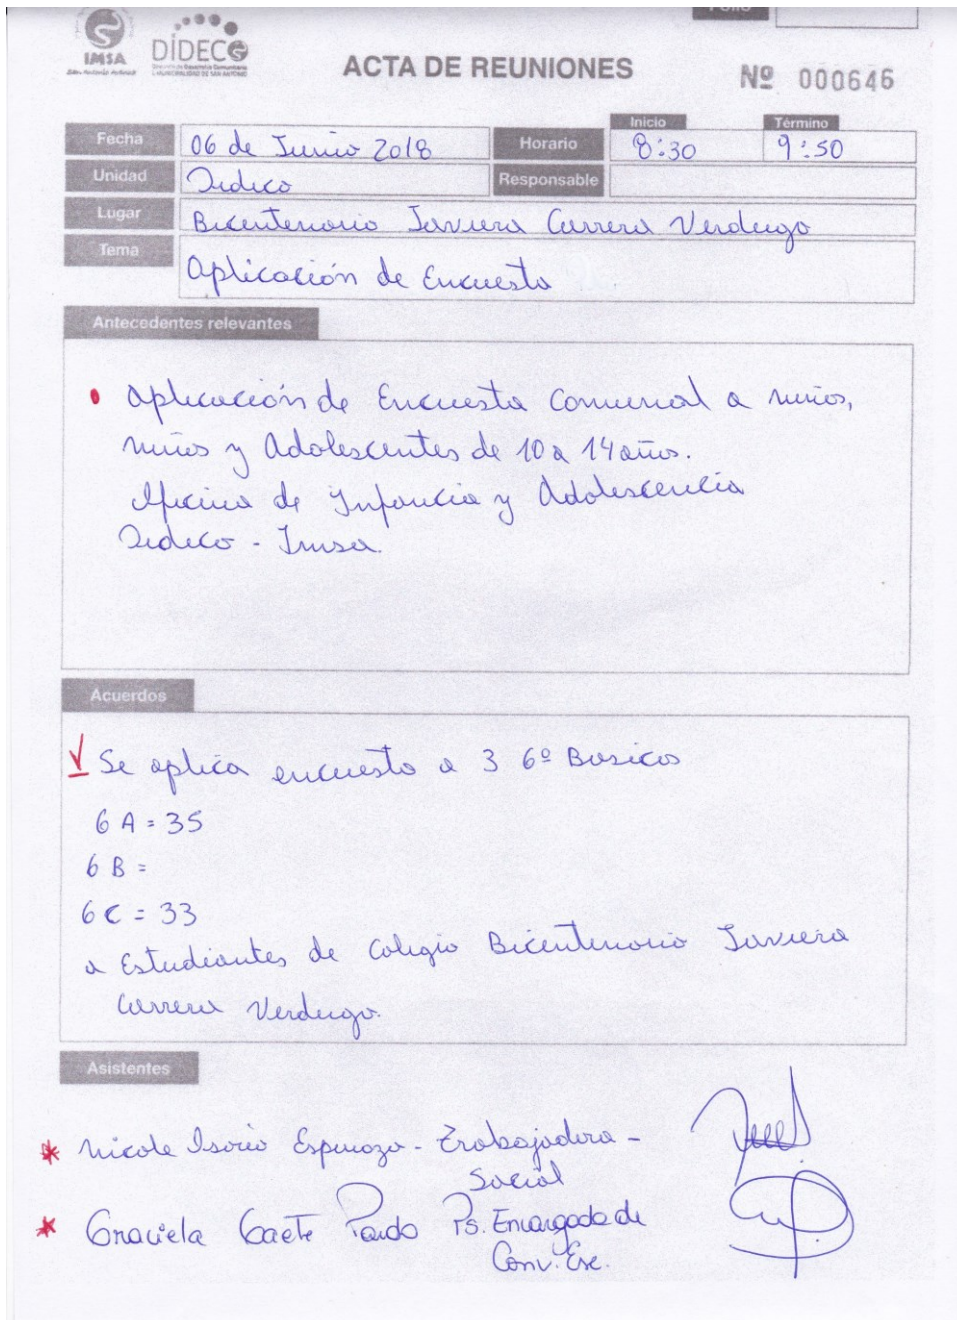 Folio
IMSA
DIDECO
ACTA DE REUNIONES
Nº 000646
Inicio
Término
Fecha
06 de Junio 2018
Horario
8:30
9:50
Unidad
Dideco
Responsable
Lugar
Bicentenario Javiera Carrera Verdugo
Tema
Aplicación de Encuesta
Antecedentes relevantes
• Aplicación de Encuesta Comunal a niños,
niñas y Adolescentes de 10 a 14 años.
Oficina de Infancia y Adolescencia
Dideco - Imsa
Acuerdos
Se aplica encuesta a 3 6º Basicos
6 A = 35
6 B =
6 C = 33
a Estudiantes de Colegio Bicentenario Javiera
Carrera Verdugo.
Asistentes
* Nicole Espinoza - Trabajadora -
Social
* Graciela Gaete Pardo Ps. Encargada de
Conv. Esc.